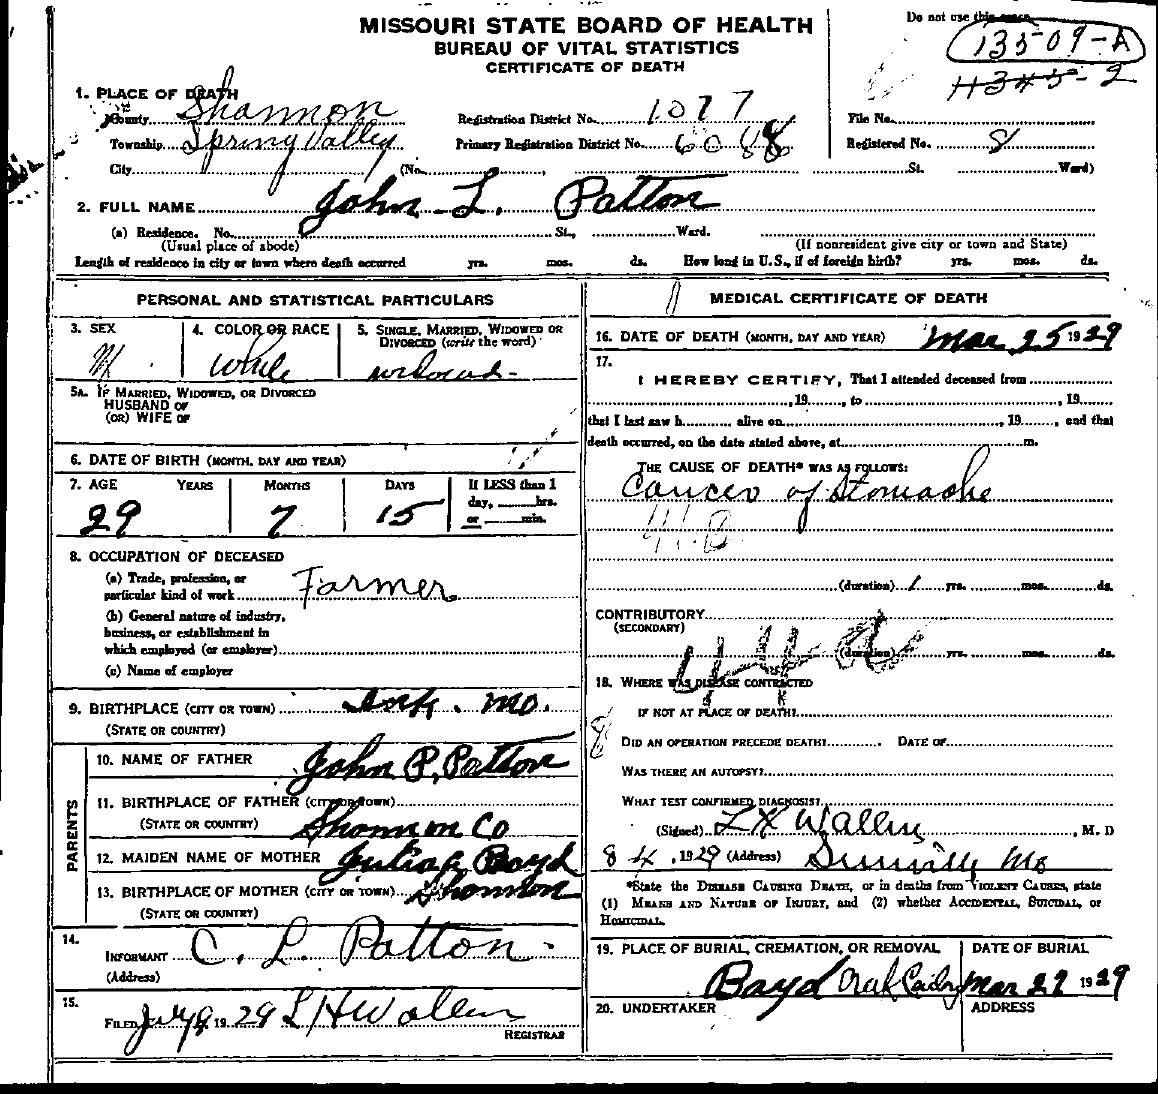 MISSOURI STATE BOARD OF HEALTH
BUREAU OF VITAL STATISTICS
CERTIFICATE OF DEATH
Do not use this
13509-A
11345-2
1. PLACE OF DEATH
County Shannon Registration District No. 1077 File No.
Township Spring Valley Primary Registration District No. 6088 Registered No. 8
City (No. , St. Ward)
2. FULL NAME John L. Patton
(a) Residence. No. St., Ward.
(Usual place of abode) (If nonresident give city or town and State)
Length of residence in city or town where death occurred yrs. mos. ds. How long in U.S., if of foreign birth? yrs. mos. ds.
PERSONAL AND STATISTICAL PARTICULARS
3. SEX 4. COLOR OR RACE 5. SINGLE, MARRIED, WIDOWED OR
DIVORCED (write the word)
M White widowed
5A. IF MARRIED, WIDOWED, OR DIVORCED
HUSBAND OF
(OR) WIFE OF
6. DATE OF BIRTH (MONTH, DAY AND YEAR)
7. AGE YEARS MONTHS DAYS If LESS than 1
day, hrs.
or min.
29 7 15
8. OCCUPATION OF DECEASED
(a) Trade, profession, or
particular kind of work Farmer
(b) General nature of industry,
business, or establishment in
which employed (or employer)
(c) Name of employer
9. BIRTHPLACE (CITY OR TOWN) Ink. Mo.
(STATE OR COUNTRY)
PARENTS
10. NAME OF FATHER John P. Patton
11. BIRTHPLACE OF FATHER (CITY OR TOWN)
(STATE OR COUNTRY) Shannon Co
12. MAIDEN NAME OF MOTHER Boyd
13. BIRTHPLACE OF MOTHER (CITY OR TOWN) Shannon
(STATE OR COUNTRY)
14.
INFORMANT C. L. Patton
(Address)
15.
FILED 19 29 L H Wallen
REGISTRAR
MEDICAL CERTIFICATE OF DEATH
16. DATE OF DEATH (MONTH, DAY AND YEAR) Mar 25 1929
17.
I HEREBY CERTIFY, That I attended deceased from
, 19 , to , 19
that I last saw h alive on , 19 , and that
death occurred, on the date stated above, at m.
THE CAUSE OF DEATH* WAS AS FOLLOWS:
Cancer of Stomache
(duration) 1 yrs. mos. ds.
CONTRIBUTORY
(SECONDARY)
44a
(duration) yrs. mos. ds.
18. WHERE WAS DISEASE CONTRACTED
IF NOT AT PLACE OF DEATH?
DID AN OPERATION PRECEDE DEATH? DATE OF
WAS THERE AN AUTOPSY?
WHAT TEST CONFIRMED DIAGNOSIS?
(Signed) L H Wallen , M. D
8 4 , 1929 (Address) Mo
*State the DISEASE CAUSING DEATH, or in deaths from VIOLENT CAUSES, state
(1) MEANS AND NATURE OF INJURY, and (2) whether ACCIDENTAL, SUICIDAL, or
HOMICIDAL.
19. PLACE OF BURIAL, CREMATION, OR REMOVAL DATE OF BURIAL
Boyd Mar 27 1929
20. UNDERTAKER ADDRESS